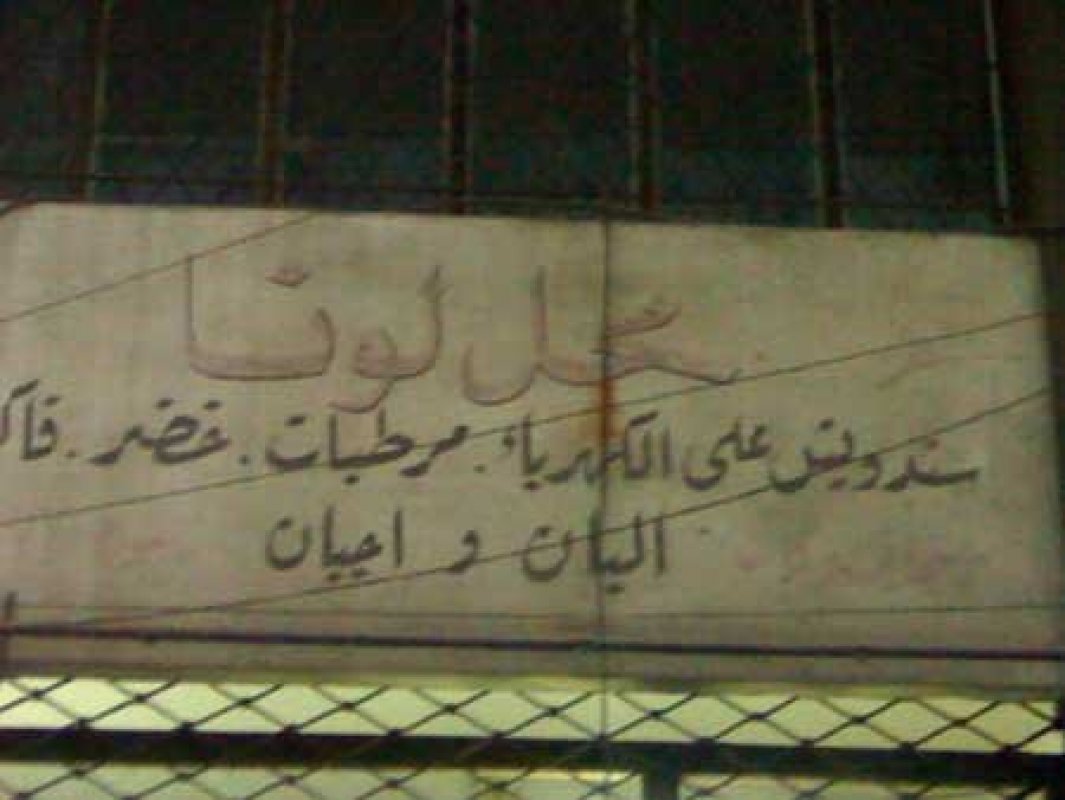 محل لونا
سندويش على الكهرباء . مرطبات . خضر . فاك
البان و اجبان